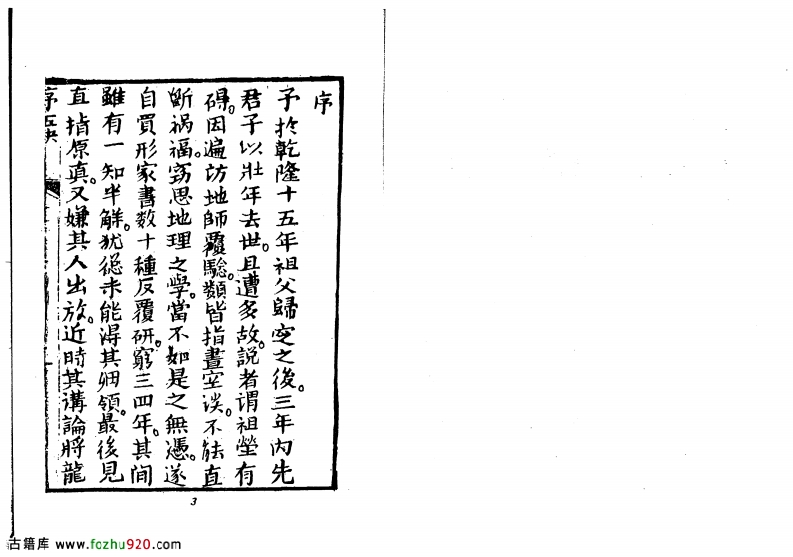 序
予於乾隆十五年祖父歸窆之後。三年内先
君子以壯年去世。且遭多故。説者謂祖塋有
碍。因遍访地師覆驗。類皆指畫空谈。不能直
斷祸福。窃思地理之學。當不如是之無憑。遂
自買形家書数十種反覆研窮。三四年。其间
雖有一知半解。犹总未能得其
領。最後見
直指原真。又嫌其人出放。近時其溝論將龍
序
3
古籍库 www.fozhu920.com